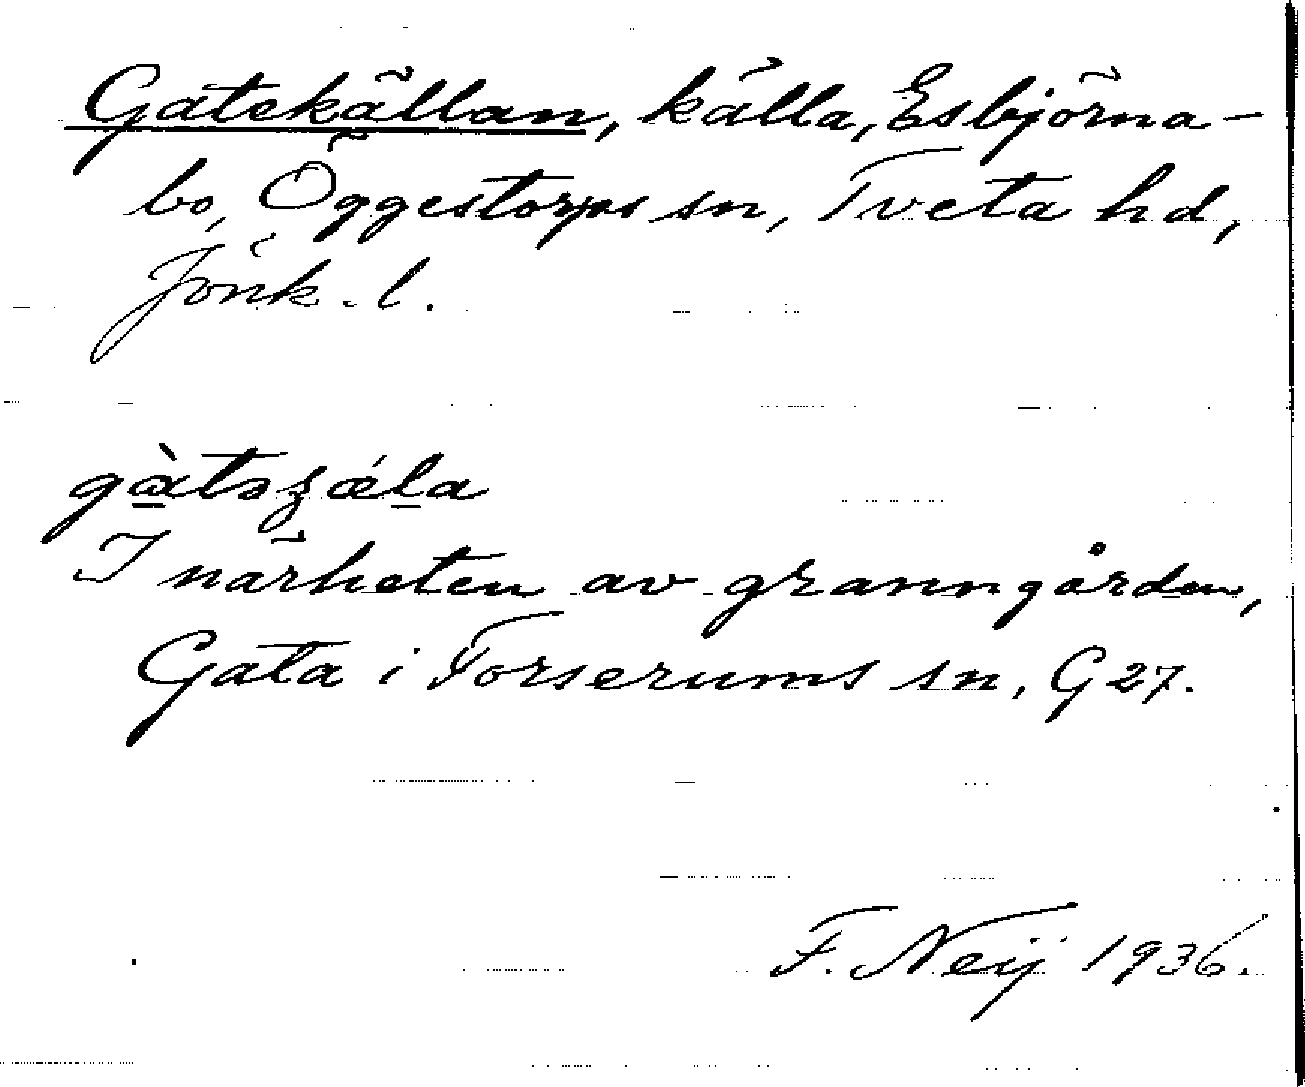 Gatekällan, källa, Esbjörna-
bo, Öggestorps sn, Tveta hd,
Jönk. l.
gàtəʒǽla
I närheten av granngården,
Gata i Forserums sn, G 27.
F. Neij 1936.